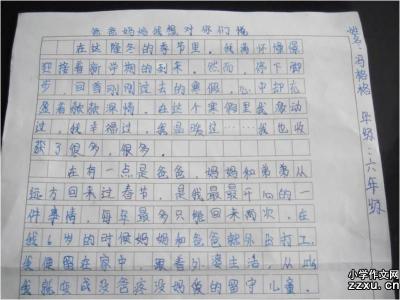 爸爸妈妈我想对你们说
在这隆冬的季节里，我满怀憧憬
迎接着新学期的到来，然而，停下脚
步，回首刚刚过去的寒假，心中却充
盈着款款深情。在这个寒假里我感动
过，我幸福过，我品味过……我也收
获了很多，很多。
在有一点是爸爸，妈妈和弟弟从
远方回来过春节，是我最最开心的一
件事情，每年最多只能回来两次，在
我6岁的时候妈妈和爸爸就外出打工，
我便留在家中，跟着外婆生活，从此
我就变成没爸疼没妈爱的留守儿童。
姓名：冯格格 年级：六年级
小学作文网
zzxu.cn